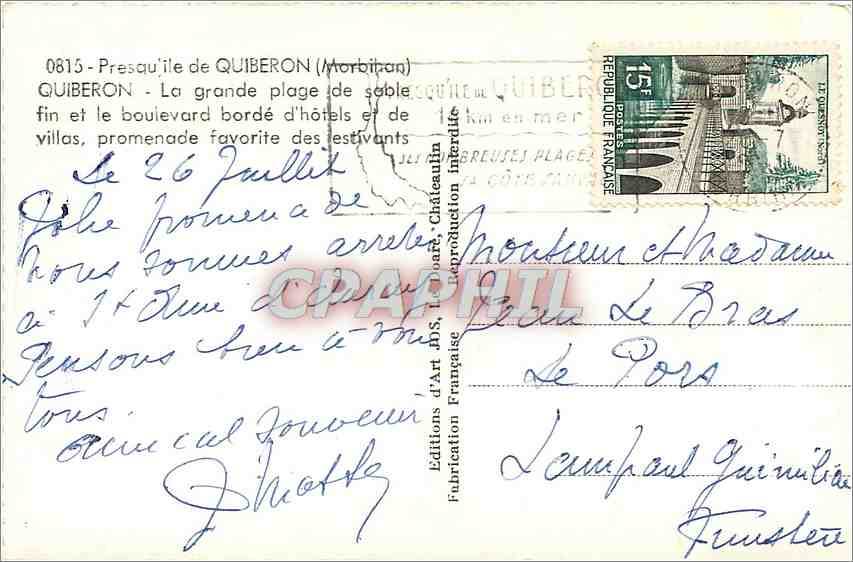 0815 - Presqu'île de QUIBERON (Morbihan)
QUIBERON - La grande plage de sable
fin et le boulevard bordé d'hôtels et de
villas, promenade favorite des estivants
Le 26 Juillet
Jolie promenade
nous sommes arretés
à Ste Anne d'Auray
Pensons bien à vous
tous.
amical souvenir
PRESQU'ILE DE QUIBERON
km en mer
SES NOMBREUSES PLAGES
SA CÔTE SAUVAGE
15F
POSTES
RÉPUBLIQUE FRANÇAISE
LE QUESNOY (NORD)
Editions d'Art JOS, Le Doaré, Châteaulin
Fabrication Française - Reproduction interdite
Monsieur et Madame
Jean Le Bras
Le Pors
Lampaul Guimiliau
Finistère
CPAPHIL